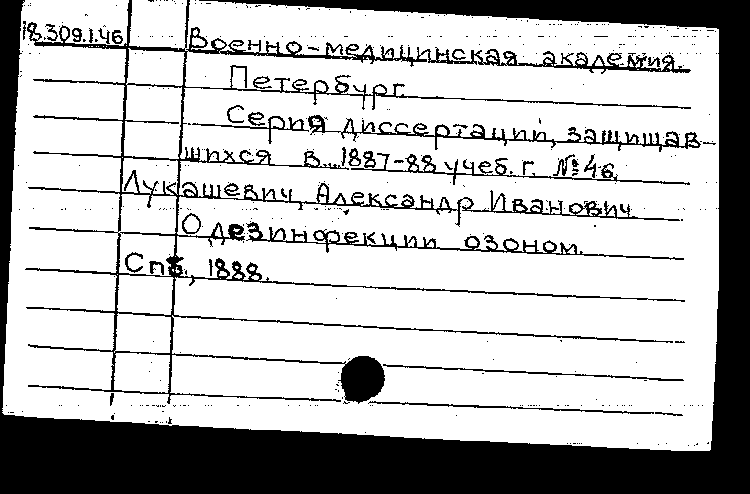 18.309.1.46 Военно-медицинская академия.
Петербург.
Серия диссертаций, защищав-
шихся в 1887-88 учеб. г. № 46.
Лукашевич, Александр Иванович
О дезинфекции озоном.
Спб., 1888.